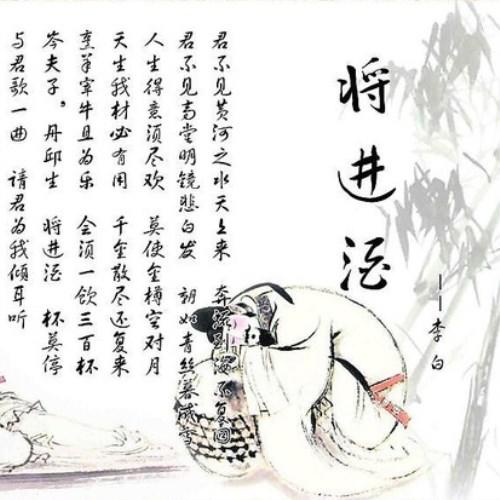 将进酒
——李白
君不见黄河之水天上来 奔流到海不复回
君不见高堂明镜悲白发 朝如青丝暮成雪
人生得意须尽欢 莫使金樽空对月
天生我材必有用 千金散尽还复来
烹羊宰牛且为乐 会须一饮三百杯
岑夫子。丹邱生 将进酒 杯莫停
与君歌一曲 请君为我倾耳听